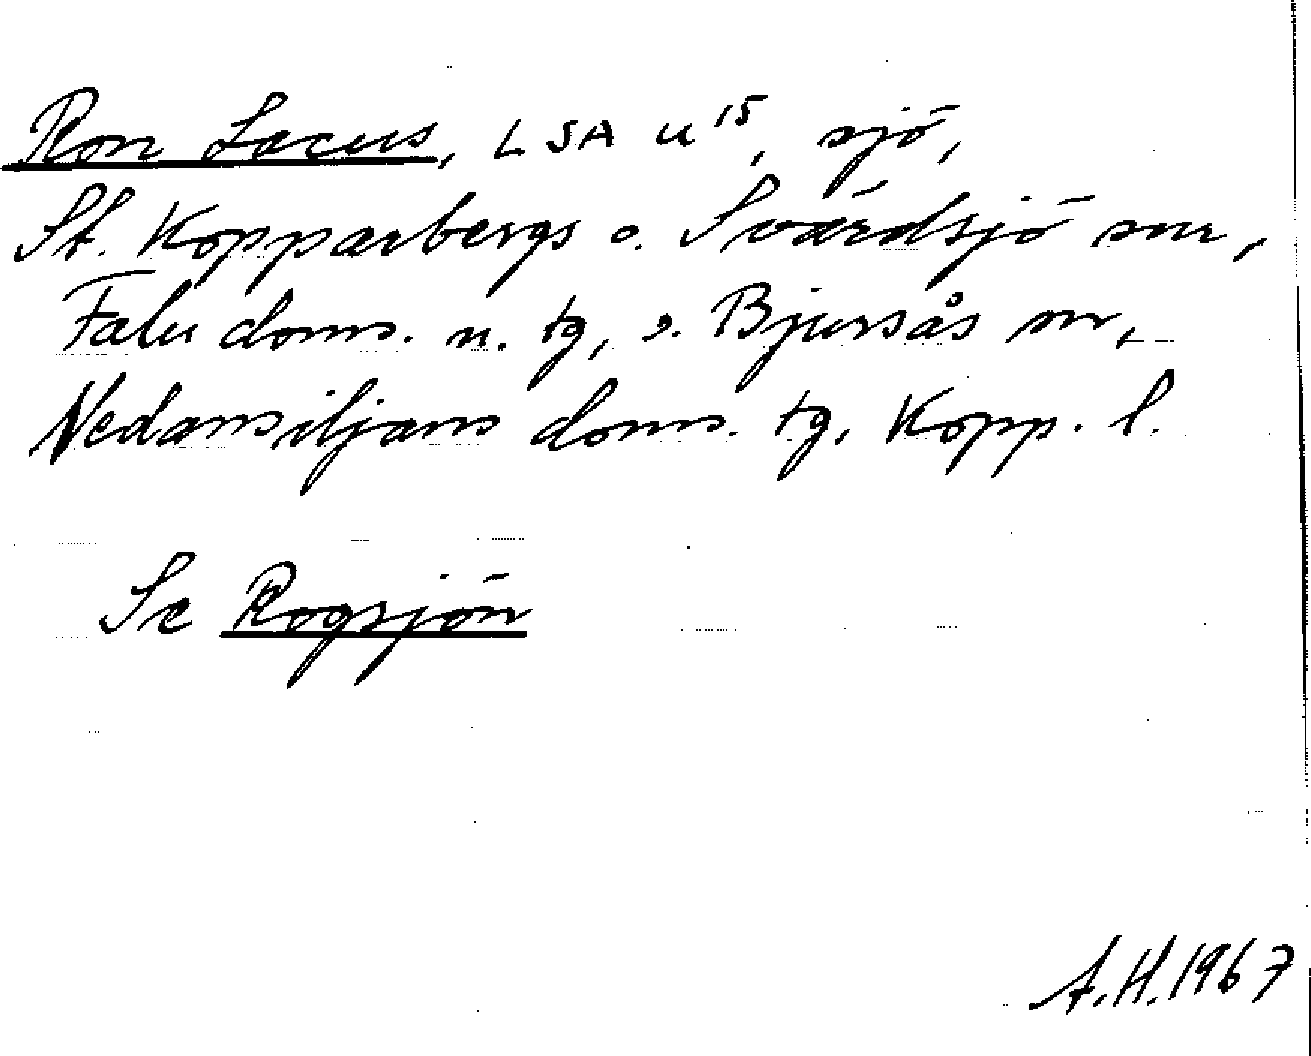 Ron Lacus, LSA u¹⁵, sjö,
St. Kopparbergs o. Svärdsjö snr,
Falu doms. n. tg, o. Bjursås sn,
Nedansiljans doms. tg, Kopp. l.
Se Rogsjön
A.H.1967